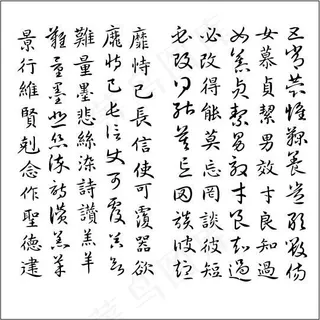 五常恭惟鞠養豈敢毀傷
女慕貞潔男效才良知過
女慕貞潔男效才良知過
必改得能莫忘罔談彼短
必改得能莫忘罔談彼短
靡恃己長信使可覆器欲
靡恃己長信使可覆器欲
難量墨悲絲染詩讚羔羊
難量墨悲絲染詩讚羔羊
景行維賢剋念作聖德建